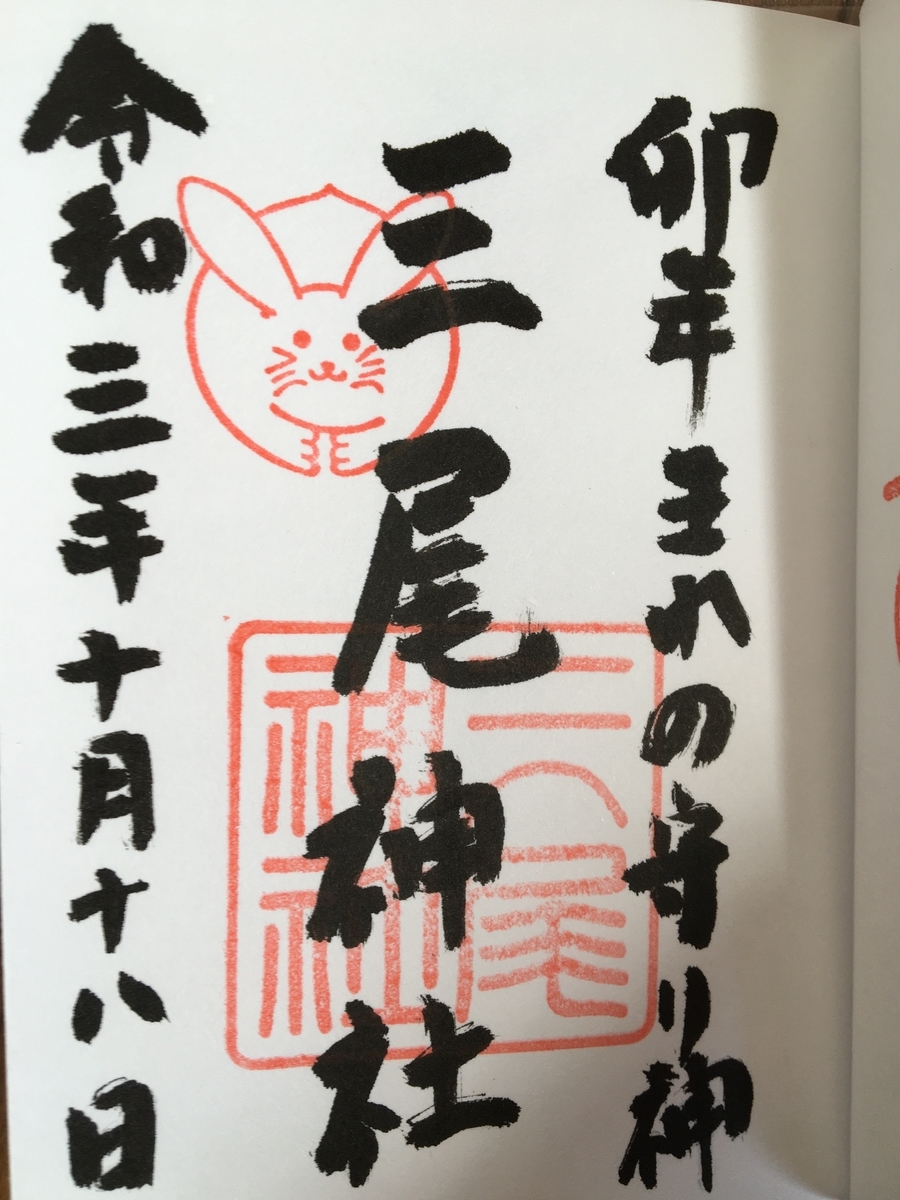 卯年生れの守り神
三尾神社
三尾神社
令和三年十月十八日